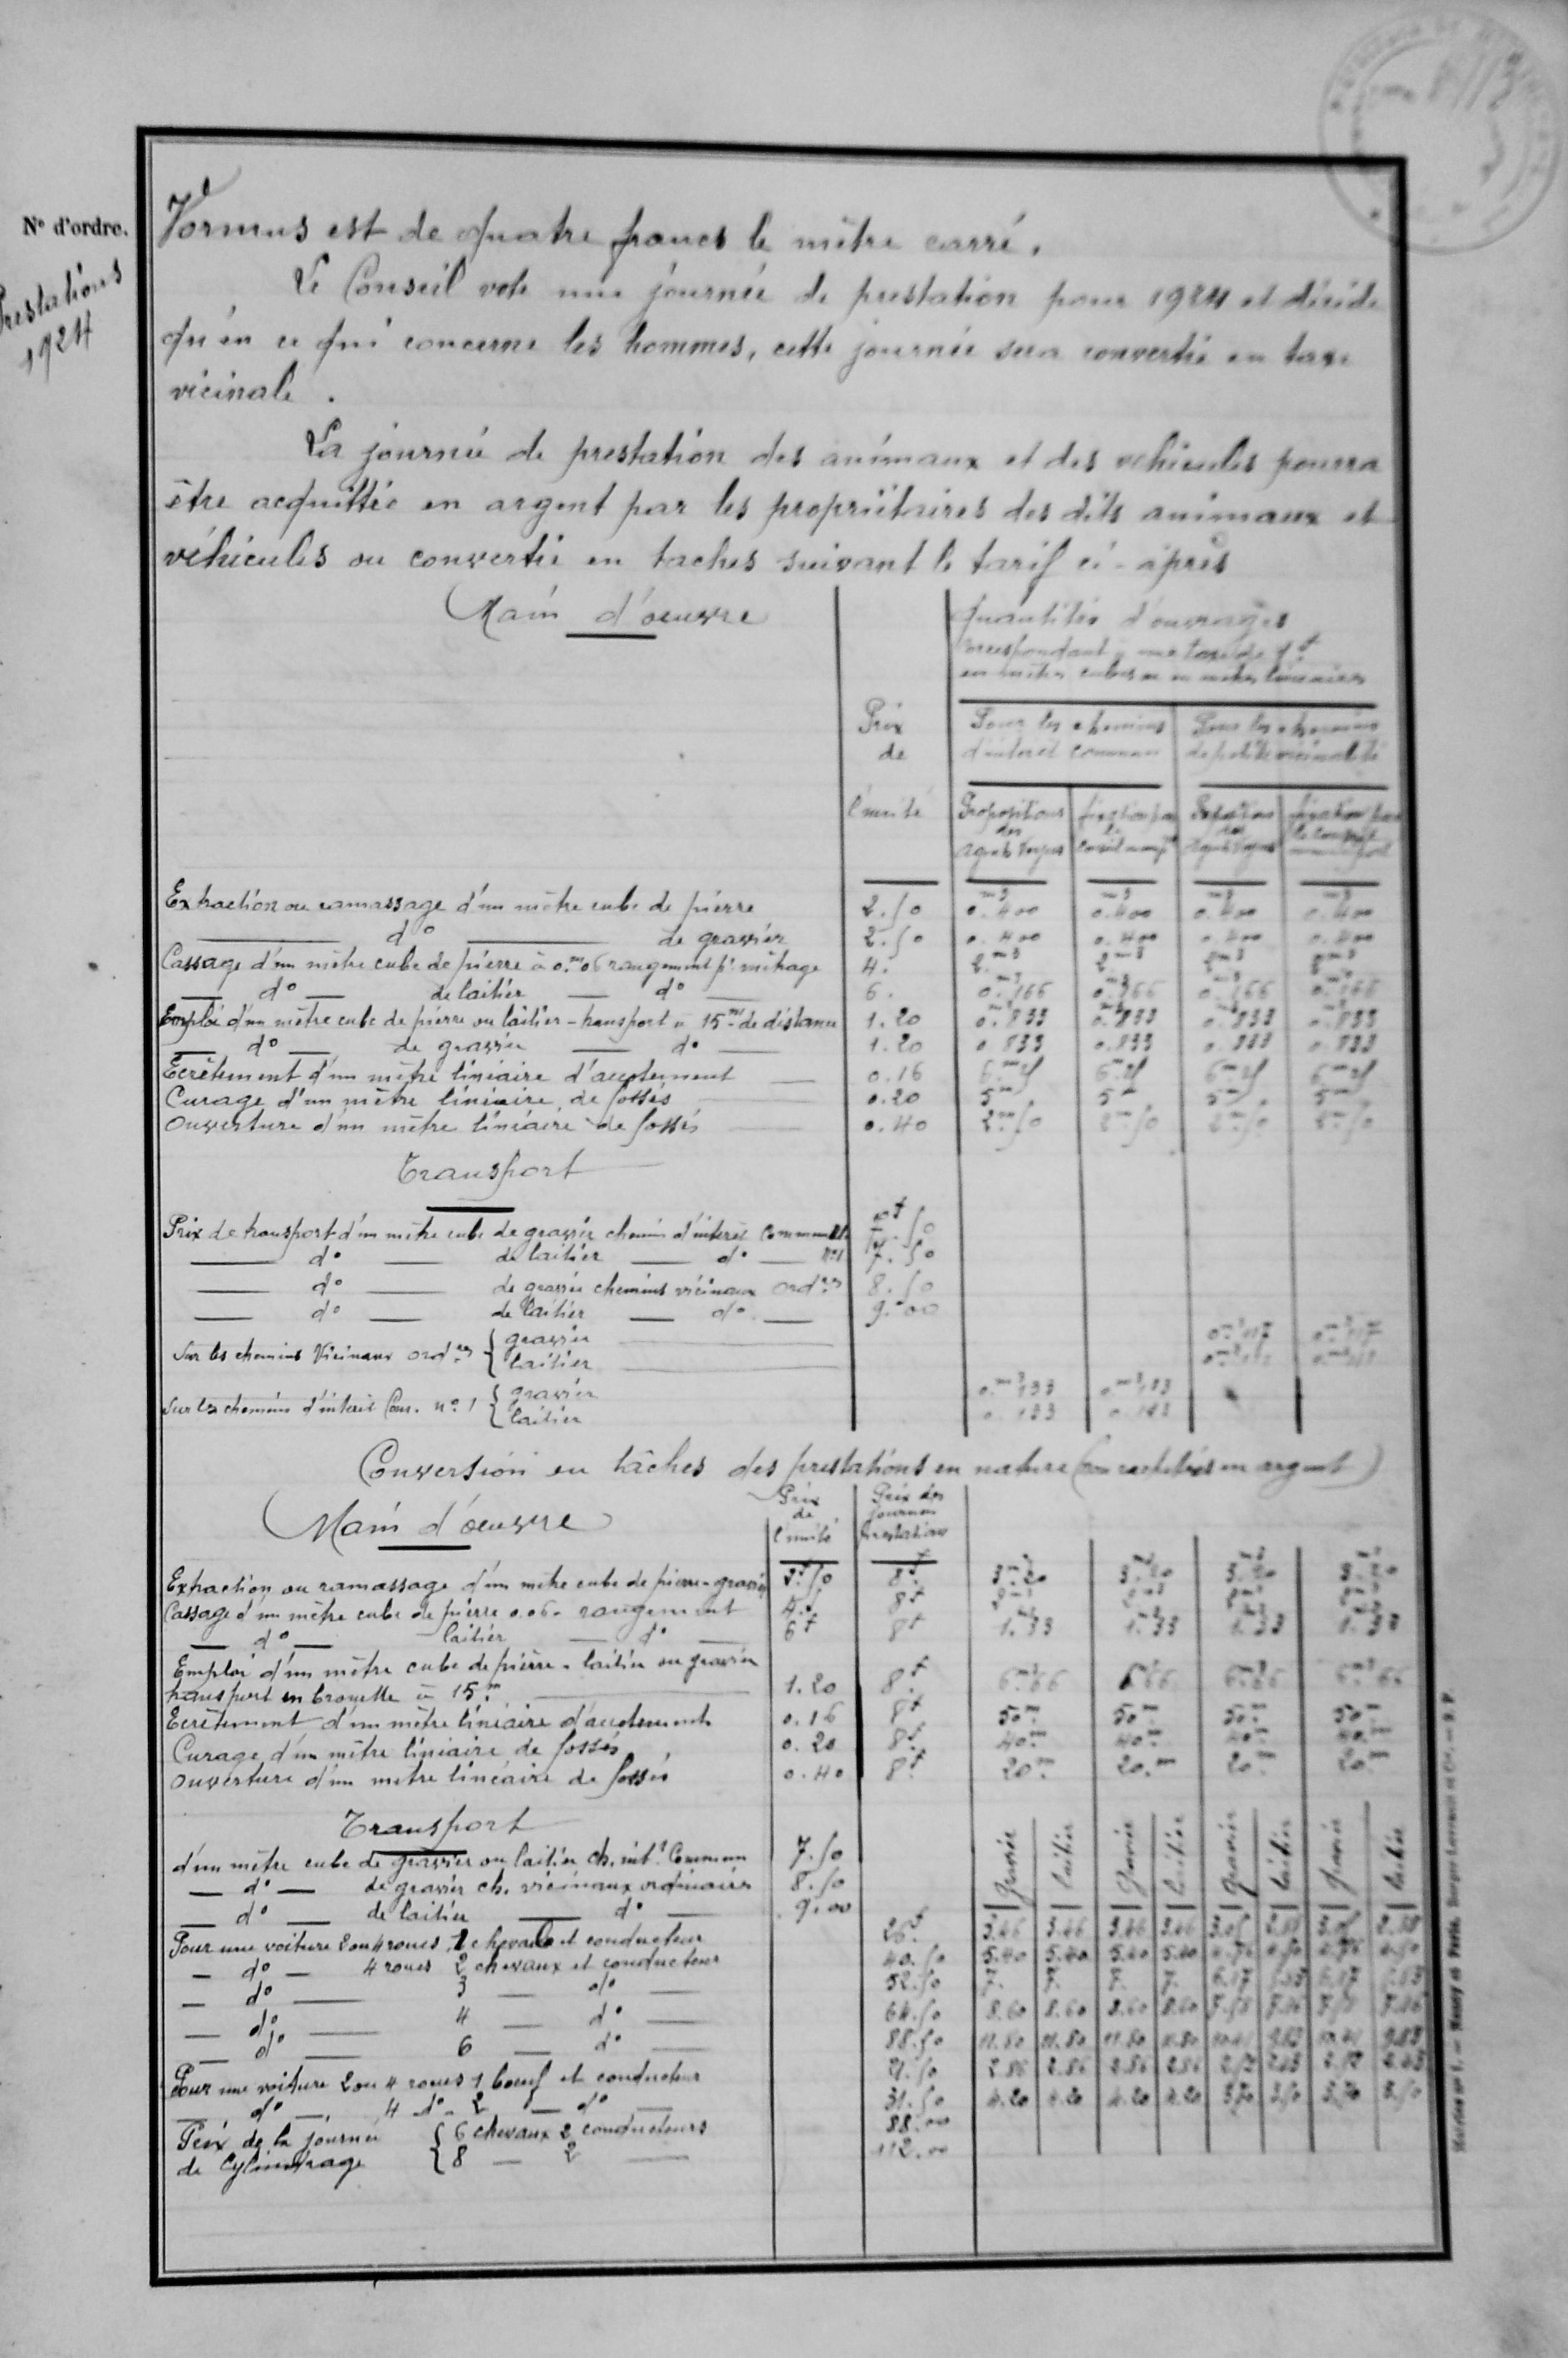 N° d'ordre.
Prestations
1924
Vormus est de quatre francs le mètre carré.
Le Conseil vote une journée de prestation pour 1924 et décide
qu'en ce qui concerne les hommes, cette journée sera convertie en taxe
vicinale.
La journée de prestation des animaux et des véhicules pourra
être acquittée en argent par les propriétaires des dits animaux et
véhicules ou convertie en taches suivant le tarif ci-après
Main d'oeuvre
quantités d'ouvrages
correspondant à une taxe de 1f
en mètres cubes ou en mètres linéaires
Prix de l'unité
Pour les chemins d'intérêt commun
Pour les chemins de petite vicinalité
Propositions des agents voyers
fixation par le conseil municipal
Propositions des agents voyers
fixation par le conseil municipal
Extraction ou ramassage d'un mètre cube de pierre 2.50 0.m3400 0.m3400 0.m3400 0.m3400
d° de gravier 2.50 0.400 0.400 0.400 0.400
Cassage d'un mètre cube de pierre à 0.m06 rangement pr métrage 4.
d° de laitier d° 6. 0.m3166 0.m3166 0.m3166 0.m3166
Emploi d'un mètre cube de pierre ou laitier - transport à 15m de distance 1.20 0.m3833 0.m3833 0.m3833 0.m3833
d° de gravier d° 1.20 0.833 0.833 0.833 0.833
Ecrêtement d'un mètre linéaire d'accotement 0.16 6.m25 6.m25 6.m25 6.m25
Curage d'un mètre linéaire de fossés 0.20 5m 5m 5m 5m
Ouverture d'un mètre linéaire de fossés 0.40 2m50 2m50 2m50 2m50
Transport
Prix de transport d'un mètre cube de gravier chemin d'intérêt Commun
d° de laitier d° n°1 7.50
d° de gravier chemins vicinaux ordres 8.50
d° de laitier d° 9.00
Sur les chemins Vicinaux ordres { gravier 0m3117 0m3117
{ laitier 0m3111 0m3111
Sur les chemins d'intérêt Com. n°1 { gravier 0.m3133 0m3133
{ laitier 0.133 0.133
Conversion en tâches des prestations en nature (non rachetées en argent)
Main d'oeuvre
Prix de l'unité
Prix des journées Prestations
Extraction ou ramassage d'un mètre cube de pierre - gravier 2f50 8f 3m320 3m320 3m320 3m320
Cassage d'un mètre cube de pierre 0.06 - rangement 4f 8f 2m3 2m3 2m3 2m3
d° laitier d° 6f 8f 1.m333 1.m333 1.m333 1.m333
Emploi d'un mètre cube de pierre - laitier ou gravier
transport en brouette à 15m 1.20 8f 6m366 6m366 6m366 6m366
Ecrêtement d'un mètre linéaire d'accotement 0.16 8f 50m 50m 50m 50m
Curage d'un mètre linéaire de fossés 0.20 8f 40m 40m 40m 40m
Ouverture d'un mètre linéaire de fossés 0.40 8f 20m 20m 20m 20m
Transport
gravier laitier gravier laitier gravier laitier gravier laitier
d'un mètre cube de gravier ou laitier ch. intt Commun 7.50
d° de gravier ch. vicinaux ordinaires 8.50
d° de laitier d° 9.00
Pour une voiture 2 ou 4 roues 1 cheval et conducteur 26f 3.46 3.46 3.46 3.46 3.05 2.88 3.05 2.88
d° 4 roues 2 chevaux et conducteur 40.50 5.40 5.40 5.40 5.40 4.76 4.50 4.76 4.50
d° 3 d° 52.50 7. 7. 7. 7. 6.17 5.83 6.17 5.83
d° 4 d° 64.50 8.60 8.60 8.60 8.60 7.58 7.16 7.58 7.16
d° 6 d° 88.50 11.80 11.80 11.80 11.80 10.41 9.83 10.41 9.83
Pour une voiture 2 ou 4 roues 1 boeuf et conducteur 21.50 2.86 2.86 2.86 2.86
d° 4 d° 2 d° 31.50 4.20 4.20 4.20 4.20 3.70 3.50 3.70 3.50
Prix de la journée { 6 chevaux 2 conducteurs 88.00
de Cylindrage { 8 2 112.00